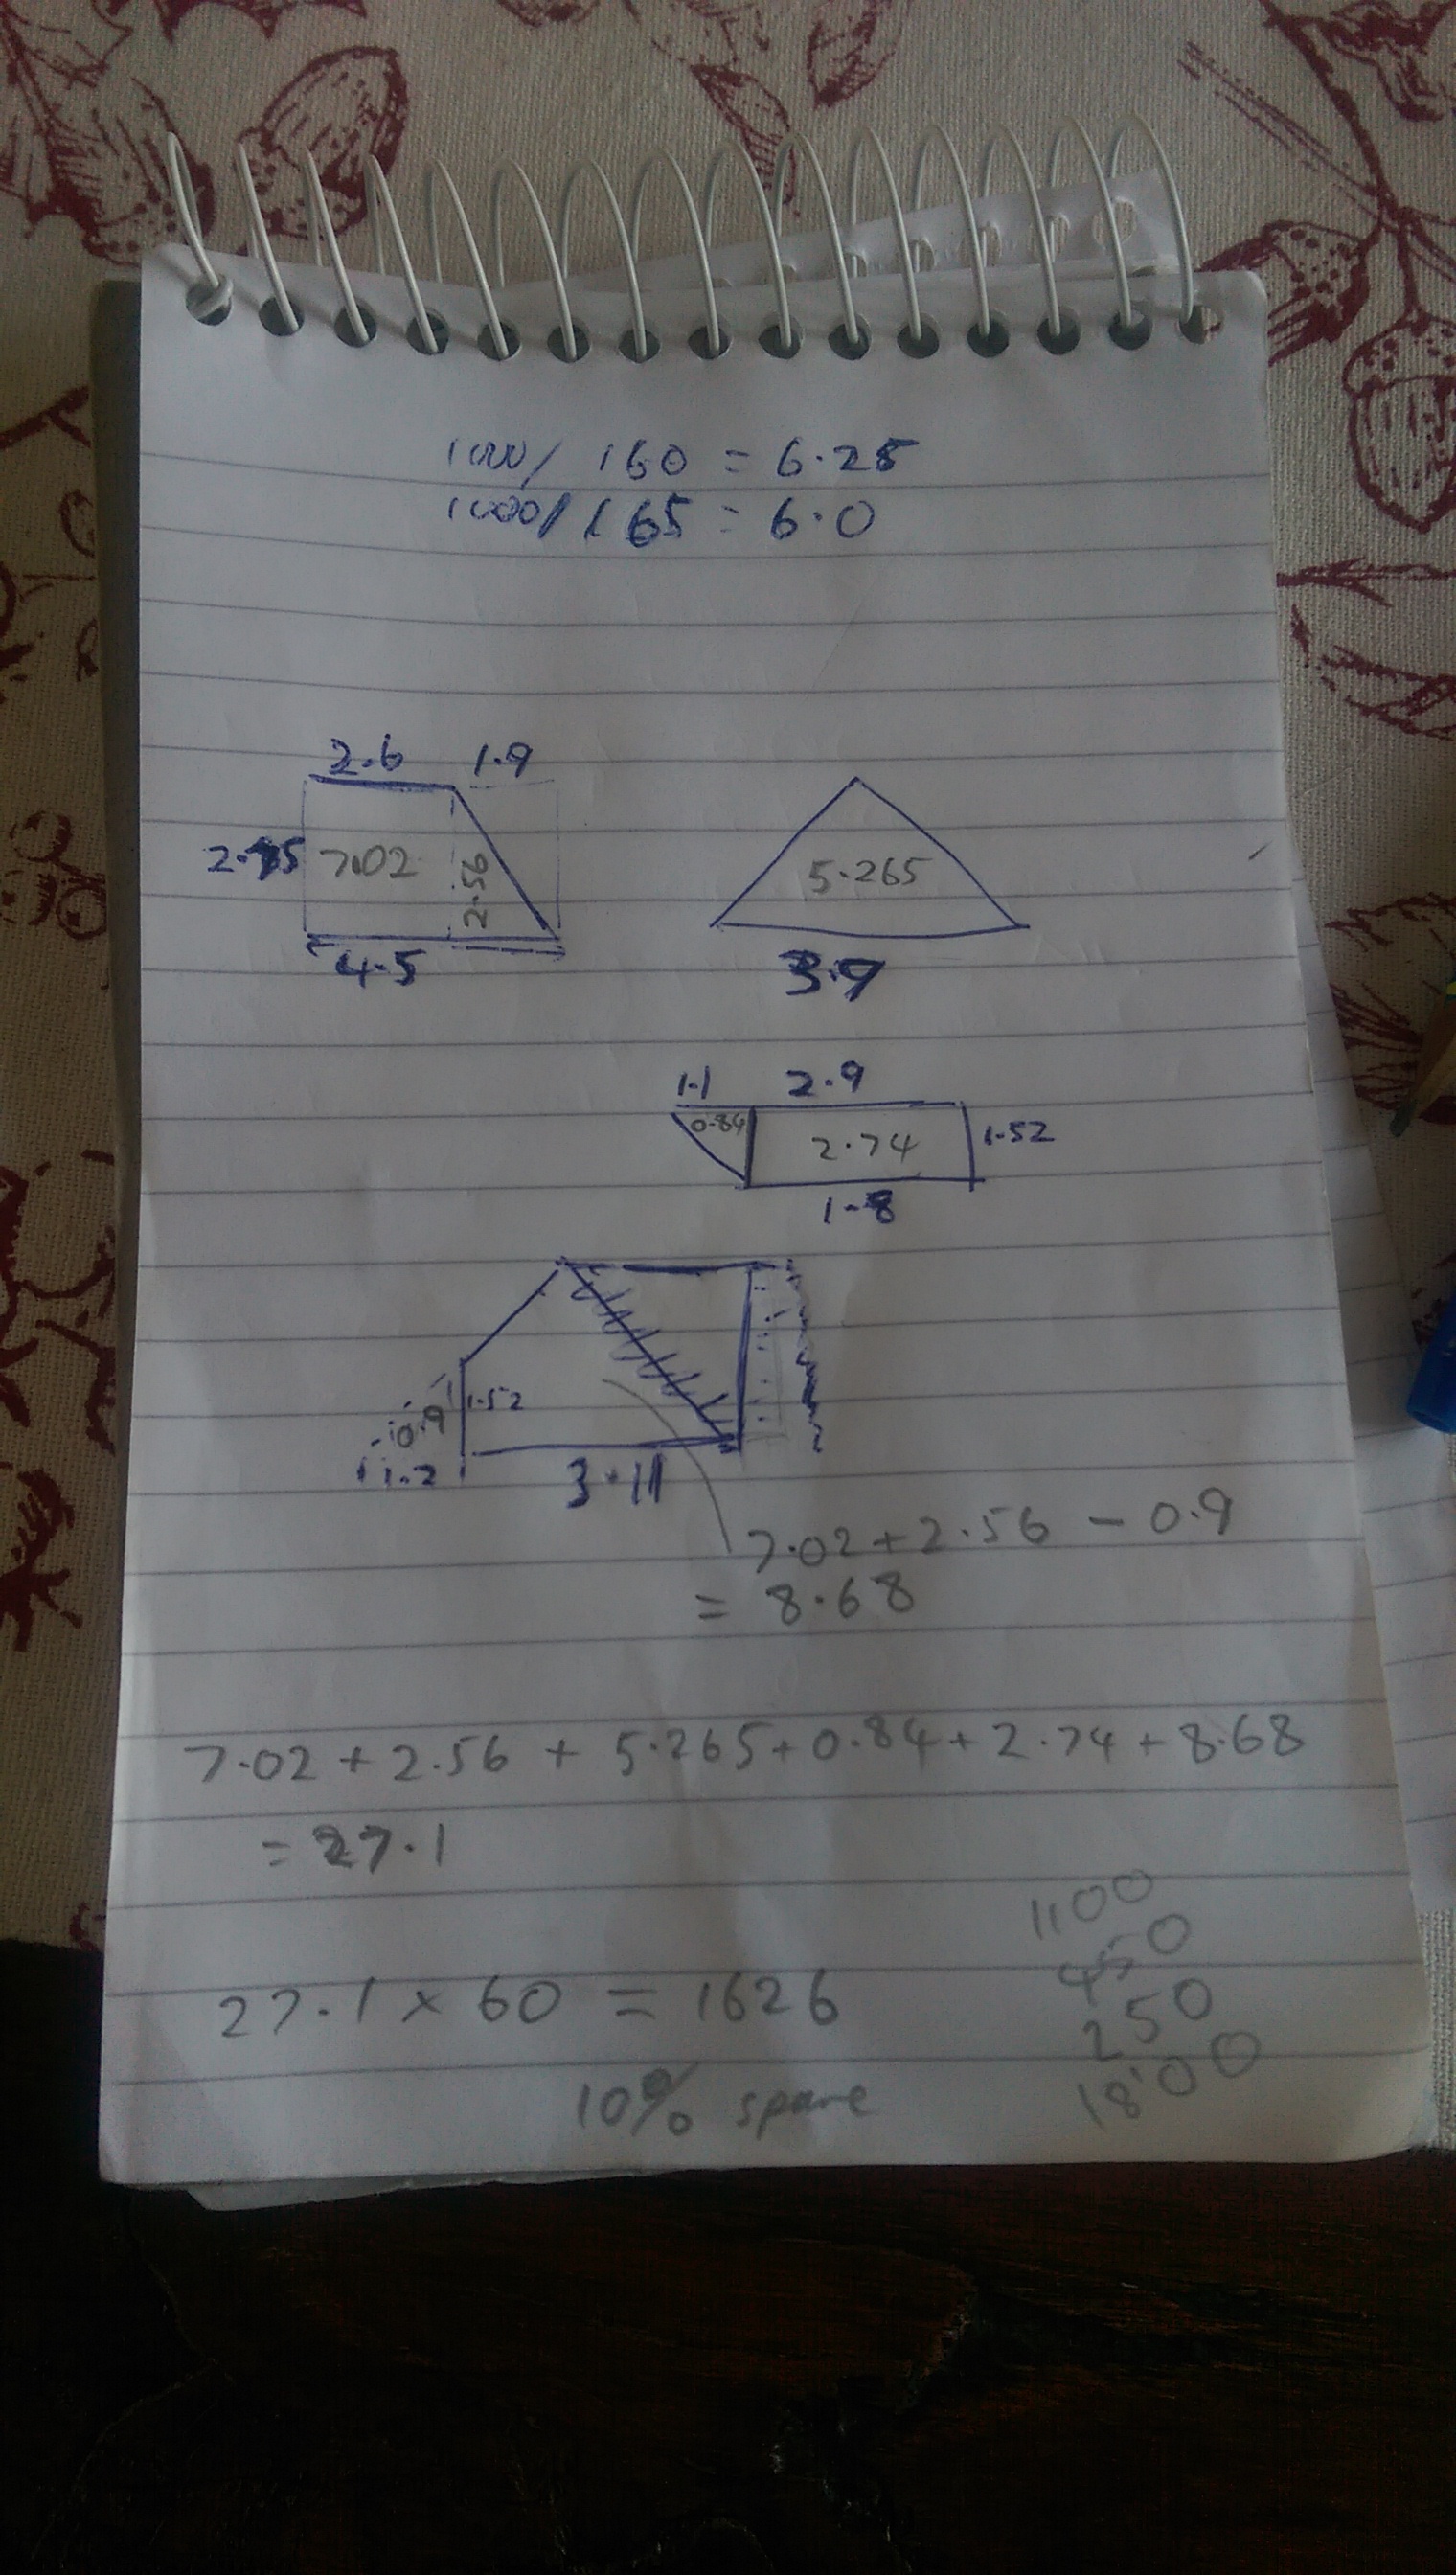 1000/ 160 = 6.25
1000/ 165 = 6.0
2.6 1.9
7.02 2.56
4.5
5.265
3.9
1.1 2.9
0.84 2.74 1.52
1.8
1.52
0.9
1.2 3.11
7.02 + 2.56 - 0.9
= 8.68
7.02 + 2.56 + 5.265 + 0.84 + 2.74 + 8.68
= 27.1
1100
450
27.1 x 60 = 1626
250
1800
10% spare